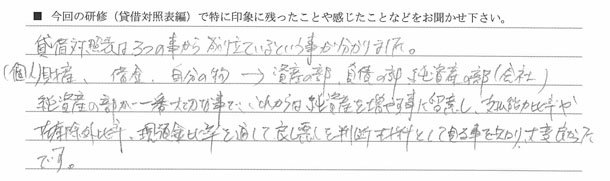 ■ 今回の研修（貸借対照表編）で特に印象に残ったことや感じたことなどをお聞かせ下さい。
貸借対照表は3つの事から成り立ているという事が分かりました。
(個人)財産、借金、自分の物 → 資産の部 負債の部 純資産の部(会社)
純資産の部が一番大切な事で、これからは純資産を増やす事に留意し、支払能力比率や
固定比率、現預金比率を通して良し悪しを判断材料として見る事を知り、大変良かった
です。